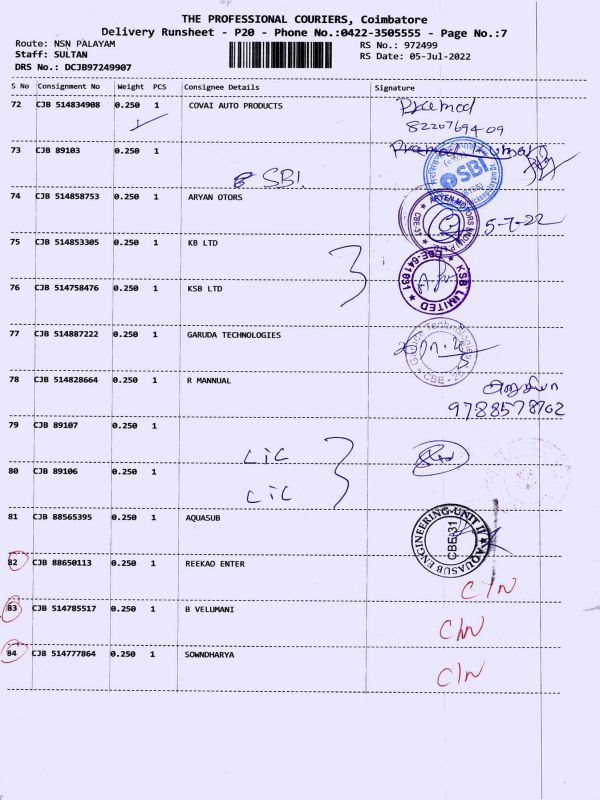 THE PROFESSIONAL COURIERS, Coimbatore
Delivery Runsheet - P20 - Phone No.:0422-3505555 - Page No.:7
Route: NSN PALAYAM RS No.: 972499
Staff: SULTAN RS Date: 05-Jul-2022
DRS No.: DCJB97249907
S No Consignment No Weight PCS Consignee Details Signature
72 CJB 514834908 0.250 1 COVAI AUTO PRODUCTS Pramod
8220769409
73 CJB 89103 0.250 1 Pramod Kumar
SBI SBI
74 CJB 514858753 0.250 1 ARYAN OTORS ARYEN MOTORS CBE-31 5-7-22
75 CJB 514853305 0.250 1 KB LTD
76 CJB 514758476 0.250 1 KSB LTD KSB LIMITED CBE-641031
77 CJB 514887222 0.250 1 GARUDA TECHNOLOGIES Technologies CBE
78 CJB 514828664 0.250 1 R MANNUAL
9788578702
79 CJB 89107 0.250 1
LIC
80 CJB 89106 0.250 1
LIC
81 CJB 88565395 0.250 1 AQUASUB AQUASUB ENGINEERING-UNIT II CBE-31
82 CJB 88650113 0.250 1 REEKAO ENTER C/N
83 CJB 514785517 0.250 1 B VELUMANI C/N
84 CJB 514777864 0.250 1 SOWNDHARYA C/N